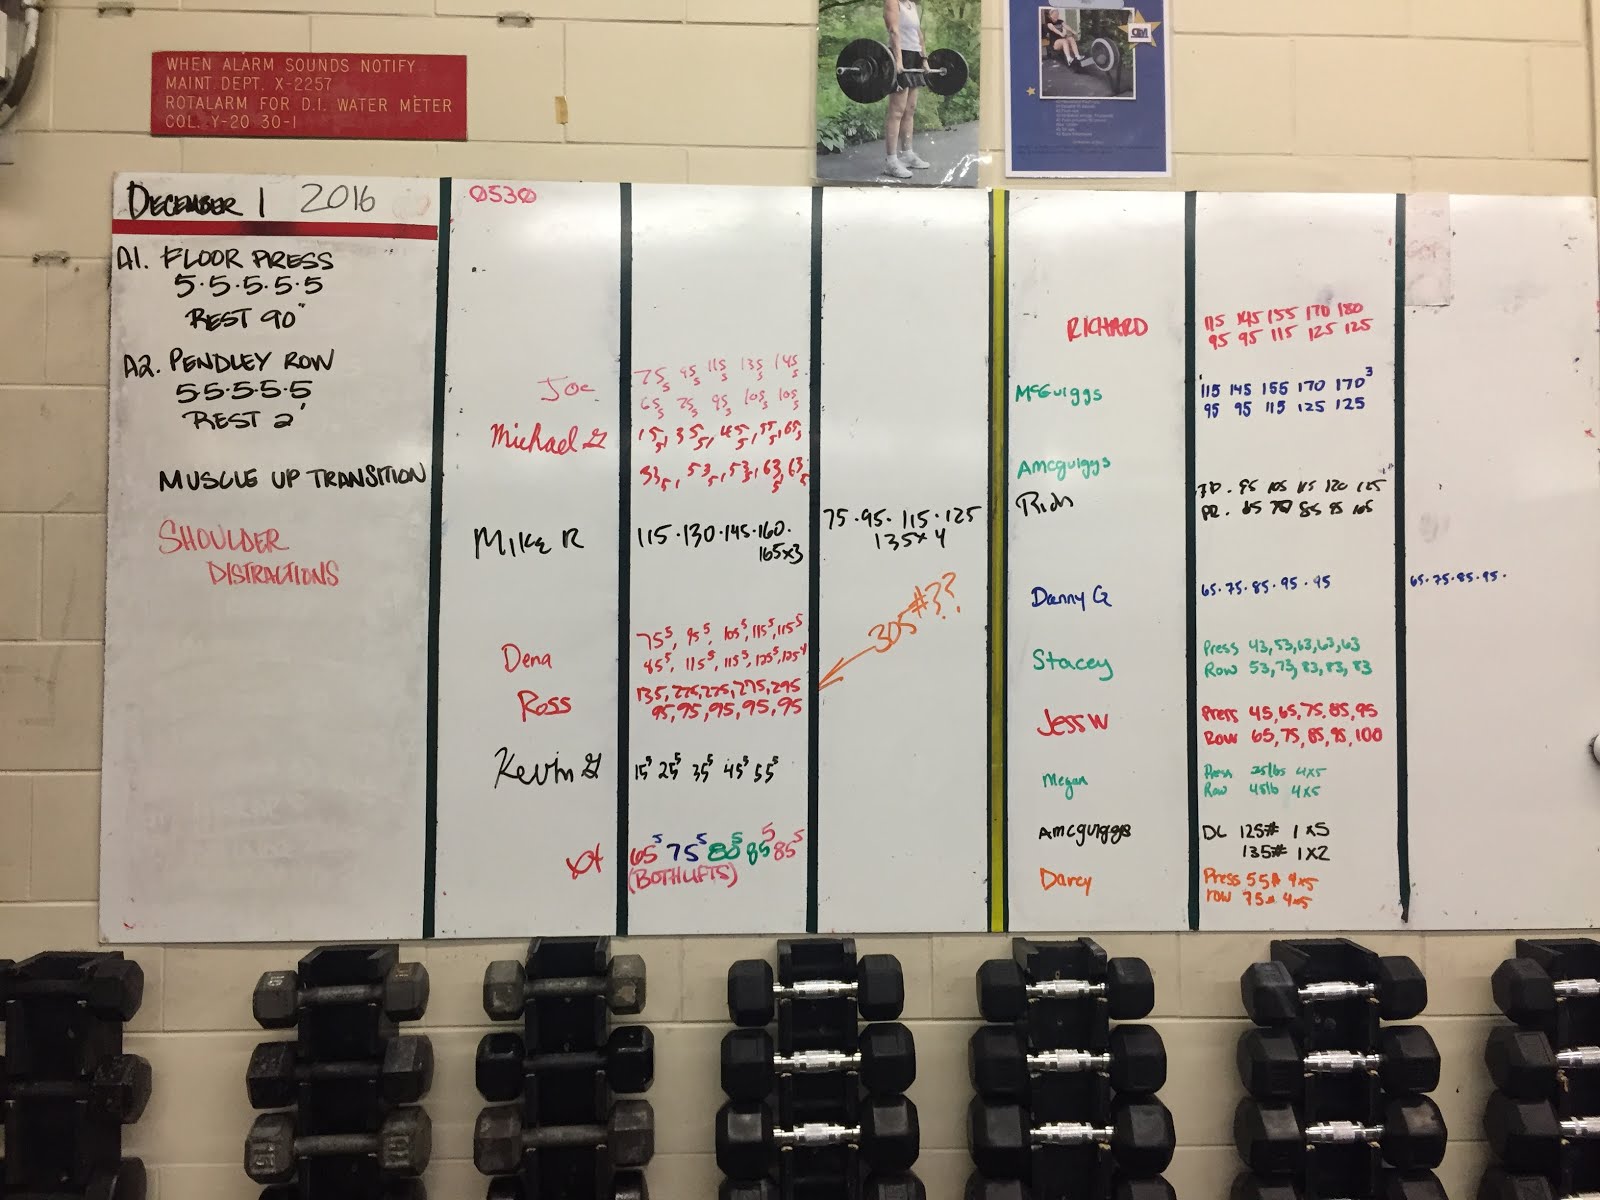 WHEN ALARM SOUNDS NOTIFY
MAINT. DEPT. X-2257
ROTALARM FOR D.I. WATER METER
COL. Y-20 30-1
DECEMBER 1 2016
A1. FLOOR PRESS
5·5·5·5·5
REST 90"
A2. PENDLEY ROW
5·5·5·5·5
REST 2'
MUSCLE UP TRANSITION
SHOULDER
DISTRACTIONS
0530
Joe
75 5 95 5 115 5 135 5 145 5
65 5 75 5 95 5 105 5 105 5
Michael G
15 5, 35 5, 45 5, 55, 65 5
33 5, 53 5, 53 5, 63 5, 63 5
Mike R
115·130·145·160·
165x3
75·95·115·125
135x4
305#??
Dena
75 5, 95 5, 105 5, 115 5, 115 5
85 5, 115 5, 115 5, 125 5, 125 4
Ross
135, 225, 225, 275, 295
95, 95, 95, 95, 95
Kevin G
15 5 25 5 35 5 45 5 55 5
65 5 75 5 80 5 85 5 85 5
(BOTH LIFTS)
RICHARD
115 145 155 170 180
95 95 115 125 125
McGuiggs
115 145 155 170 170 3
95 95 115 125 125
Amcguiggs
Rich
95 105 115 120 125
65 70 85 95 105
Danny G
65·75·85·95·95
65·75·85·95·
Stacey
Press 43, 53, 63, 63, 63
Row 53, 73, 83, 83, 83
Jess W
Press 45, 65, 75, 85, 95
Row 65, 75, 85, 95, 100
Megan
Press 25lbs 4x5
Row 45lb 4x5
Amcguiggs
DL 125# 1x5
135# 1x2
Darcy
Press 55# 4x5
row 75# 4x5